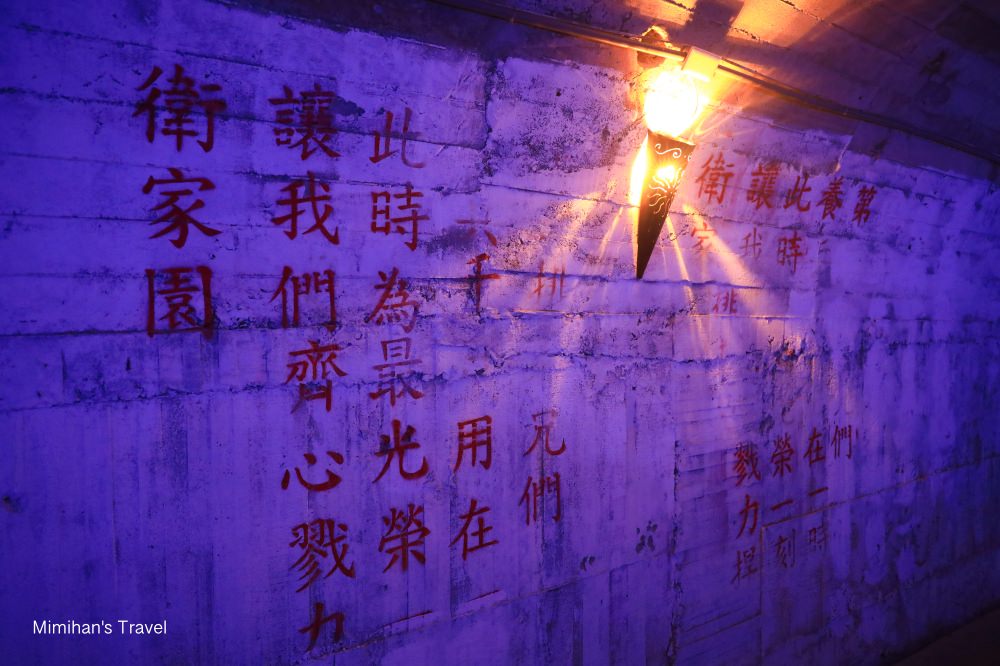 第
養 們
此時 在一時
讓我 榮一刻
衛家 戮力捍
元們
千 用在一
此時為最光榮一
讓我們齊心戮力
衛家園
Mimihan's Travel